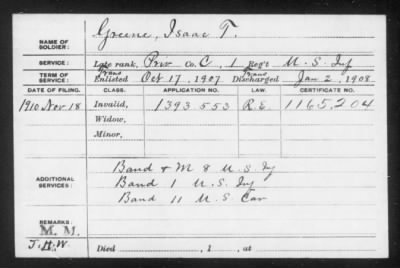 NAME OF SOLDIER: Greene, Isaac T.
SERVICE: Late rank, Priv Co. C, 1 Reg't U. S. Inf
TERM OF SERVICE: Trans Enlisted Oct 17, 1907 Trans Discharged Jan 2, 1908
DATE OF FILING. CLASS. APPLICATION NO. LAW. CERTIFICATE NO.
1910 Nov 18 Invalid, 1393 553 R.E. 1165,204
Widow,
Minor,
ADDITIONAL SERVICES: Band & M 8 U.S. Inf
Band 1 U.S. Inf
Band 11 U.S Cav
REMARKS:
M. M.
J.H.W.
Died , 1 , at